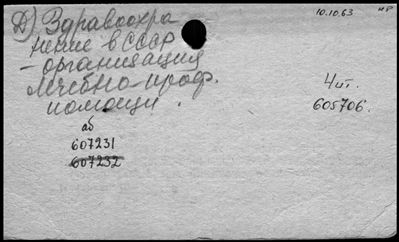 Д) Здравоохра
нение в СССР
– организация
лечебно-проф.
помощи.
10.10.63
нр
4 шт.
605706.
аб
607231
607232